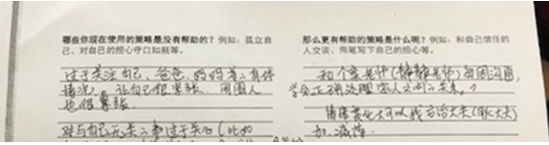 哪些你现在使用的策略是没有帮助的？例如：孤立自
己、对自己的担心守口如瓶等。
过于关注自己、爸爸、妈妈等身体
情况，让自己很紧张，周围人
也很紧张
对与自己无关之事过于关心（比如
那么更有帮助的策略是什么呢？例如：和自己信任的
人交谈、用笔写下自己的担心等。
和个案老师（静静老师）多沟通，
学会正确处理家人之间之关系。
情绪变化大可以找